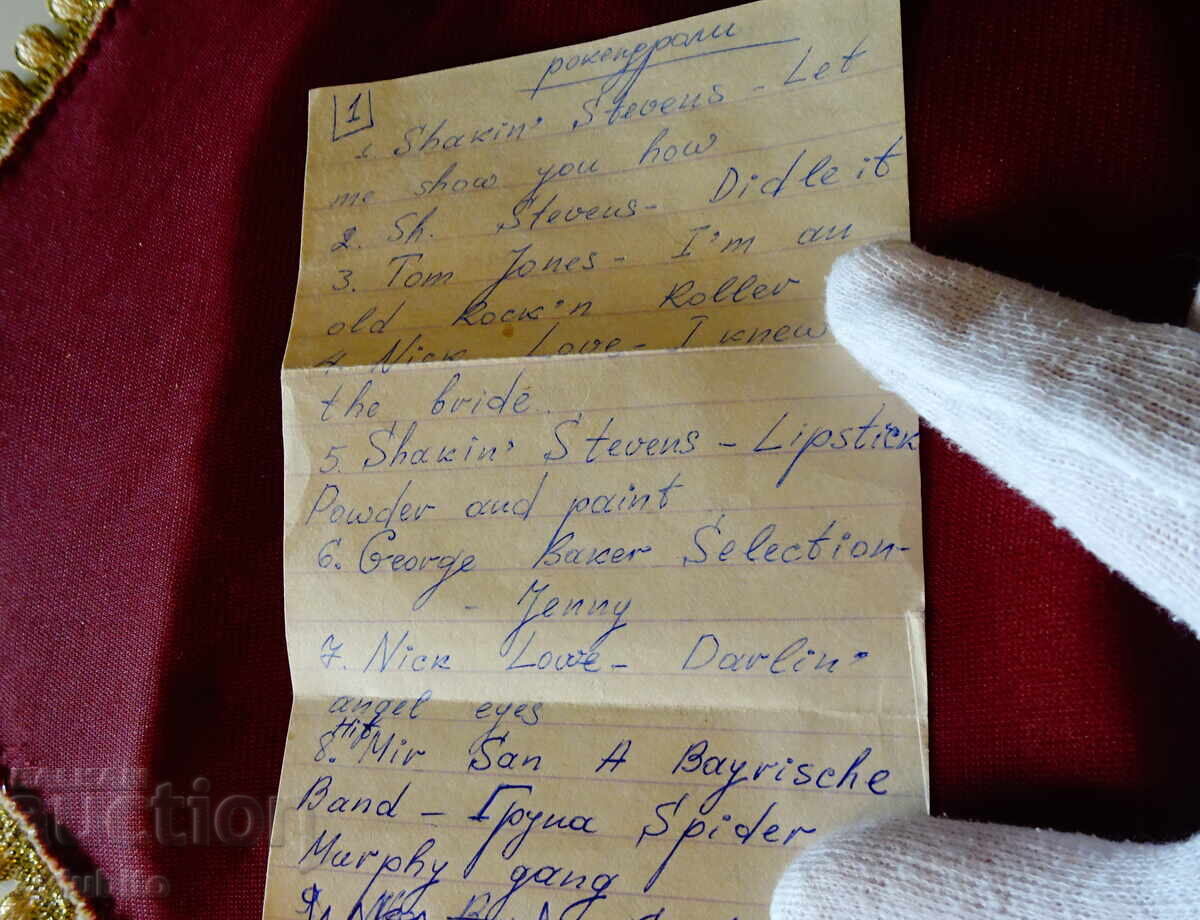 рокендроли
1
1. Shakin' Stevens - Let
me show you how
2. Sh. Stevens - Didleit
3. Tom Jones - I'm an
old Rock'n Roller
4. Nick Love - I knew
the bride.
5. Shakin' Stevens - Lipstick
Powder and paint
6. George Baker Selection-
- Jenny
7. Nick Lowe - Darlin'
angel eyes
Hit
8. Mir San A Bayrische
Band - Група Spider
Murphy gang
9.
auction